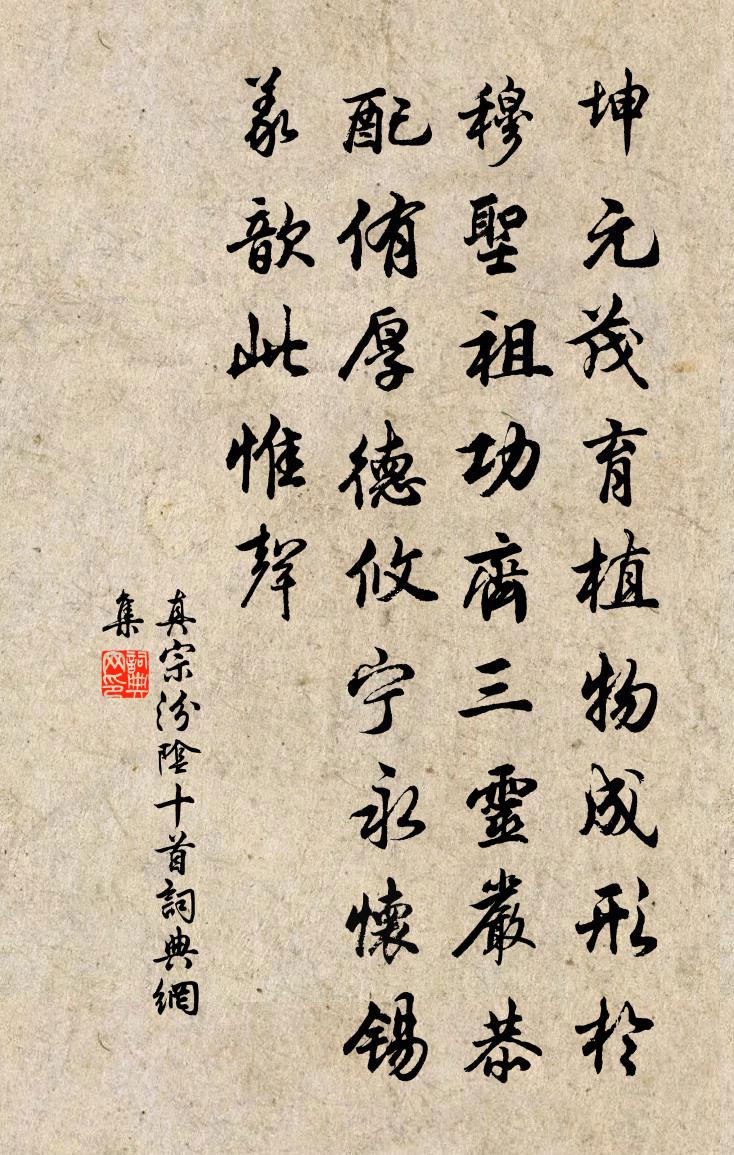 坤元茂育植物成形於
穆聖祖功齊三靈嚴恭
配侑厚德攸宁永懷錫
羨歆此惟聲
真宗汾陰十首詞典網
集
詞典
网印